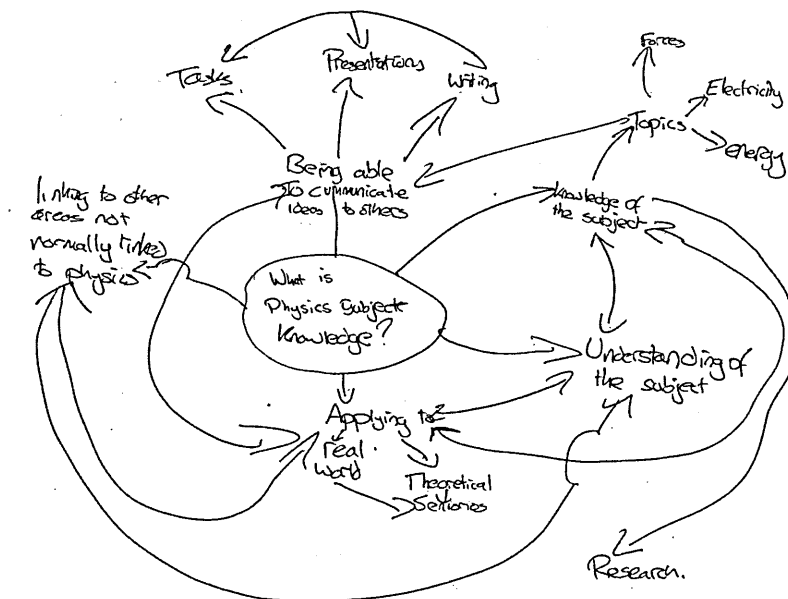 Forces
Tasks
Presentations
Writing
Electricity
Topics
energy
Being able
To communicate
ideas to others
linking to other
areas not
normally linked
to physics
knowledge of
the subject
What is
Physics Subject
Knowledge?
Understanding of
the subject
Applying to
real
world
Theoretical
Research.